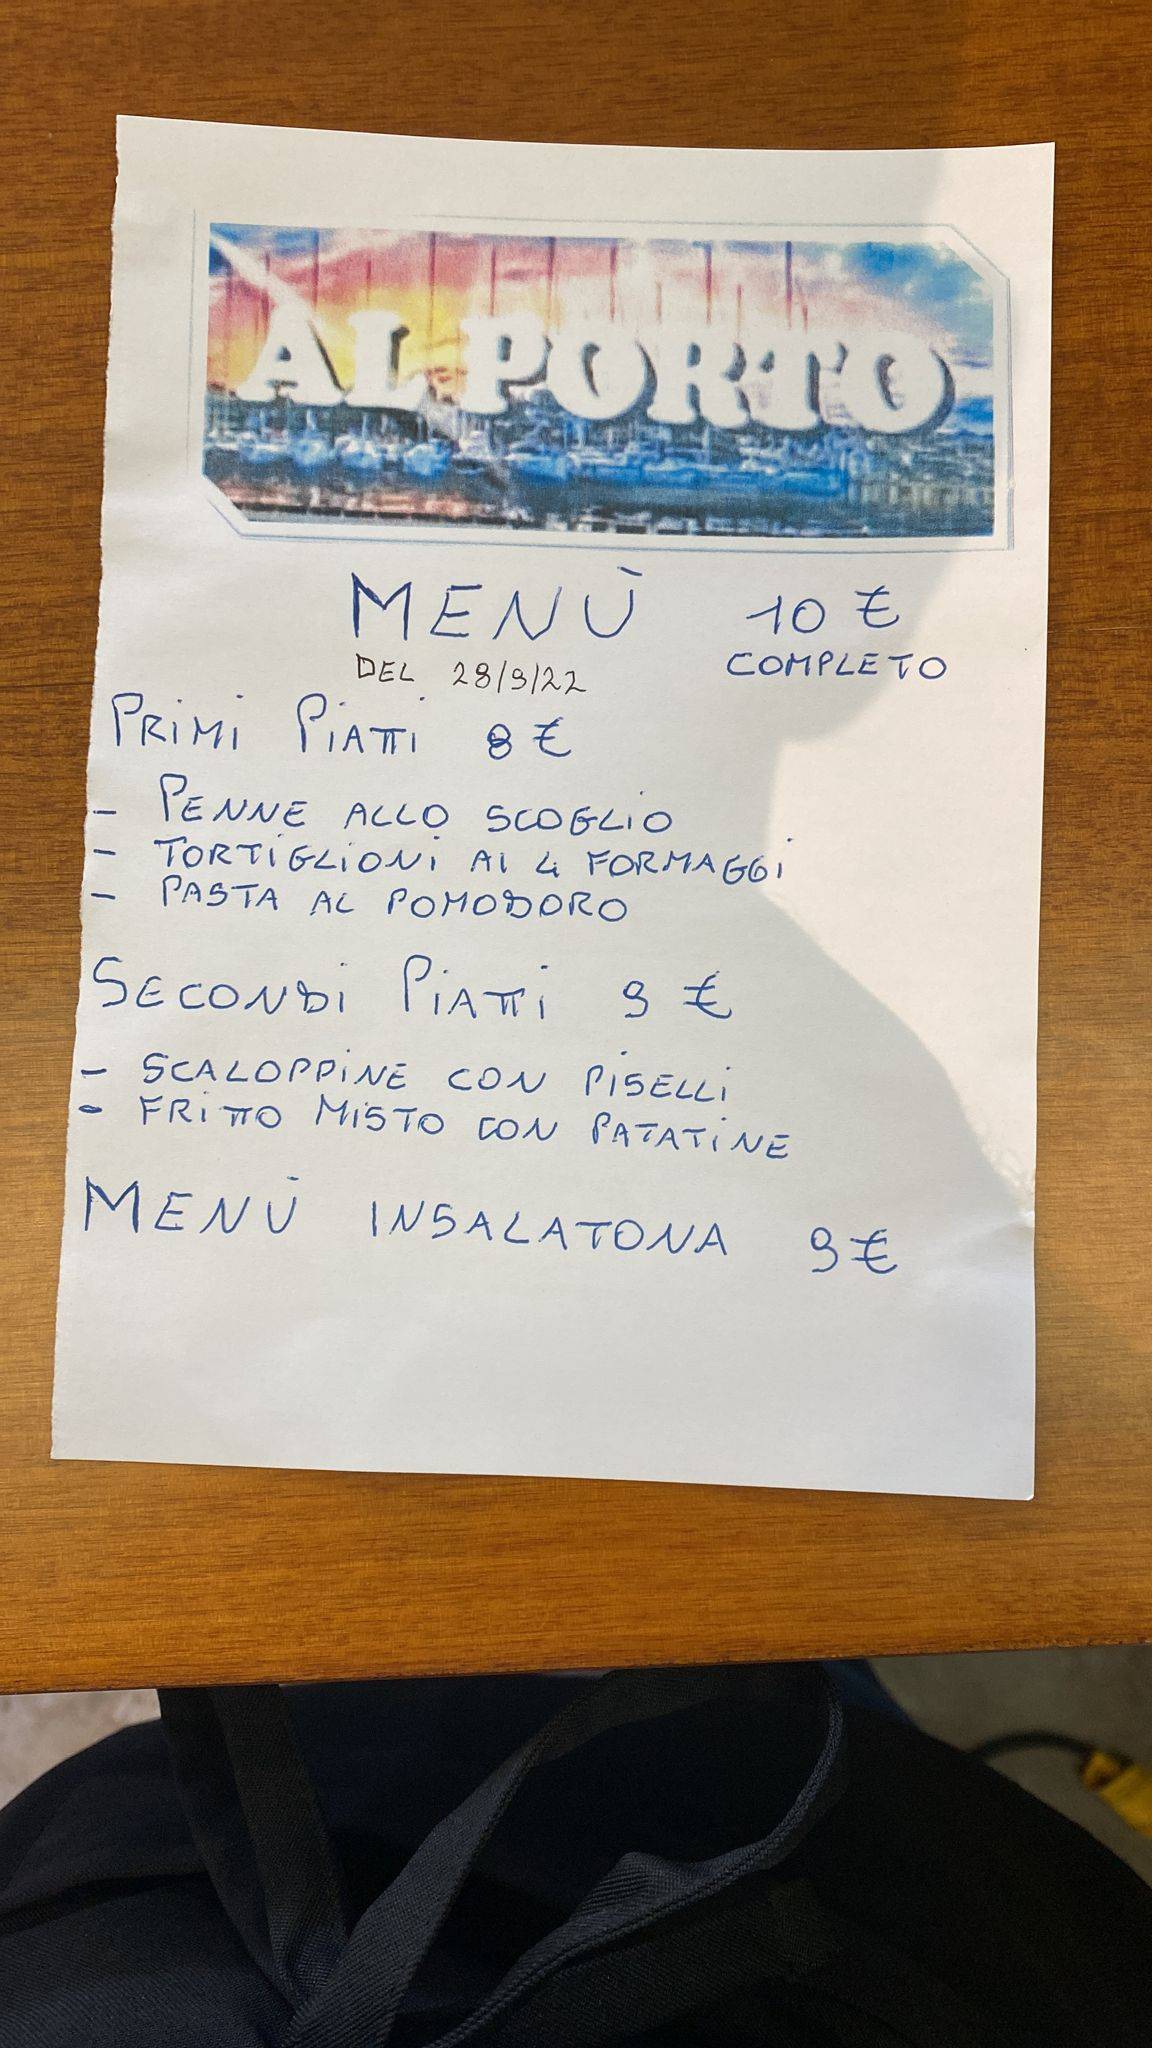 AL PORTO
MENÙ 10 €
DEL 28/9/22 COMPLETO
PRIMI PIATTI 8 €
- PENNE ALLO SCOGLIO
- TORTIGLIONI AI 4 FORMAGGI
- PASTA AL POMODORO
SECONDI PIATTI 9 €
- SCALOPPINE CON PISELLI
- FRITTO MISTO CON PATATINE
MENÙ INSALATONA 9 €